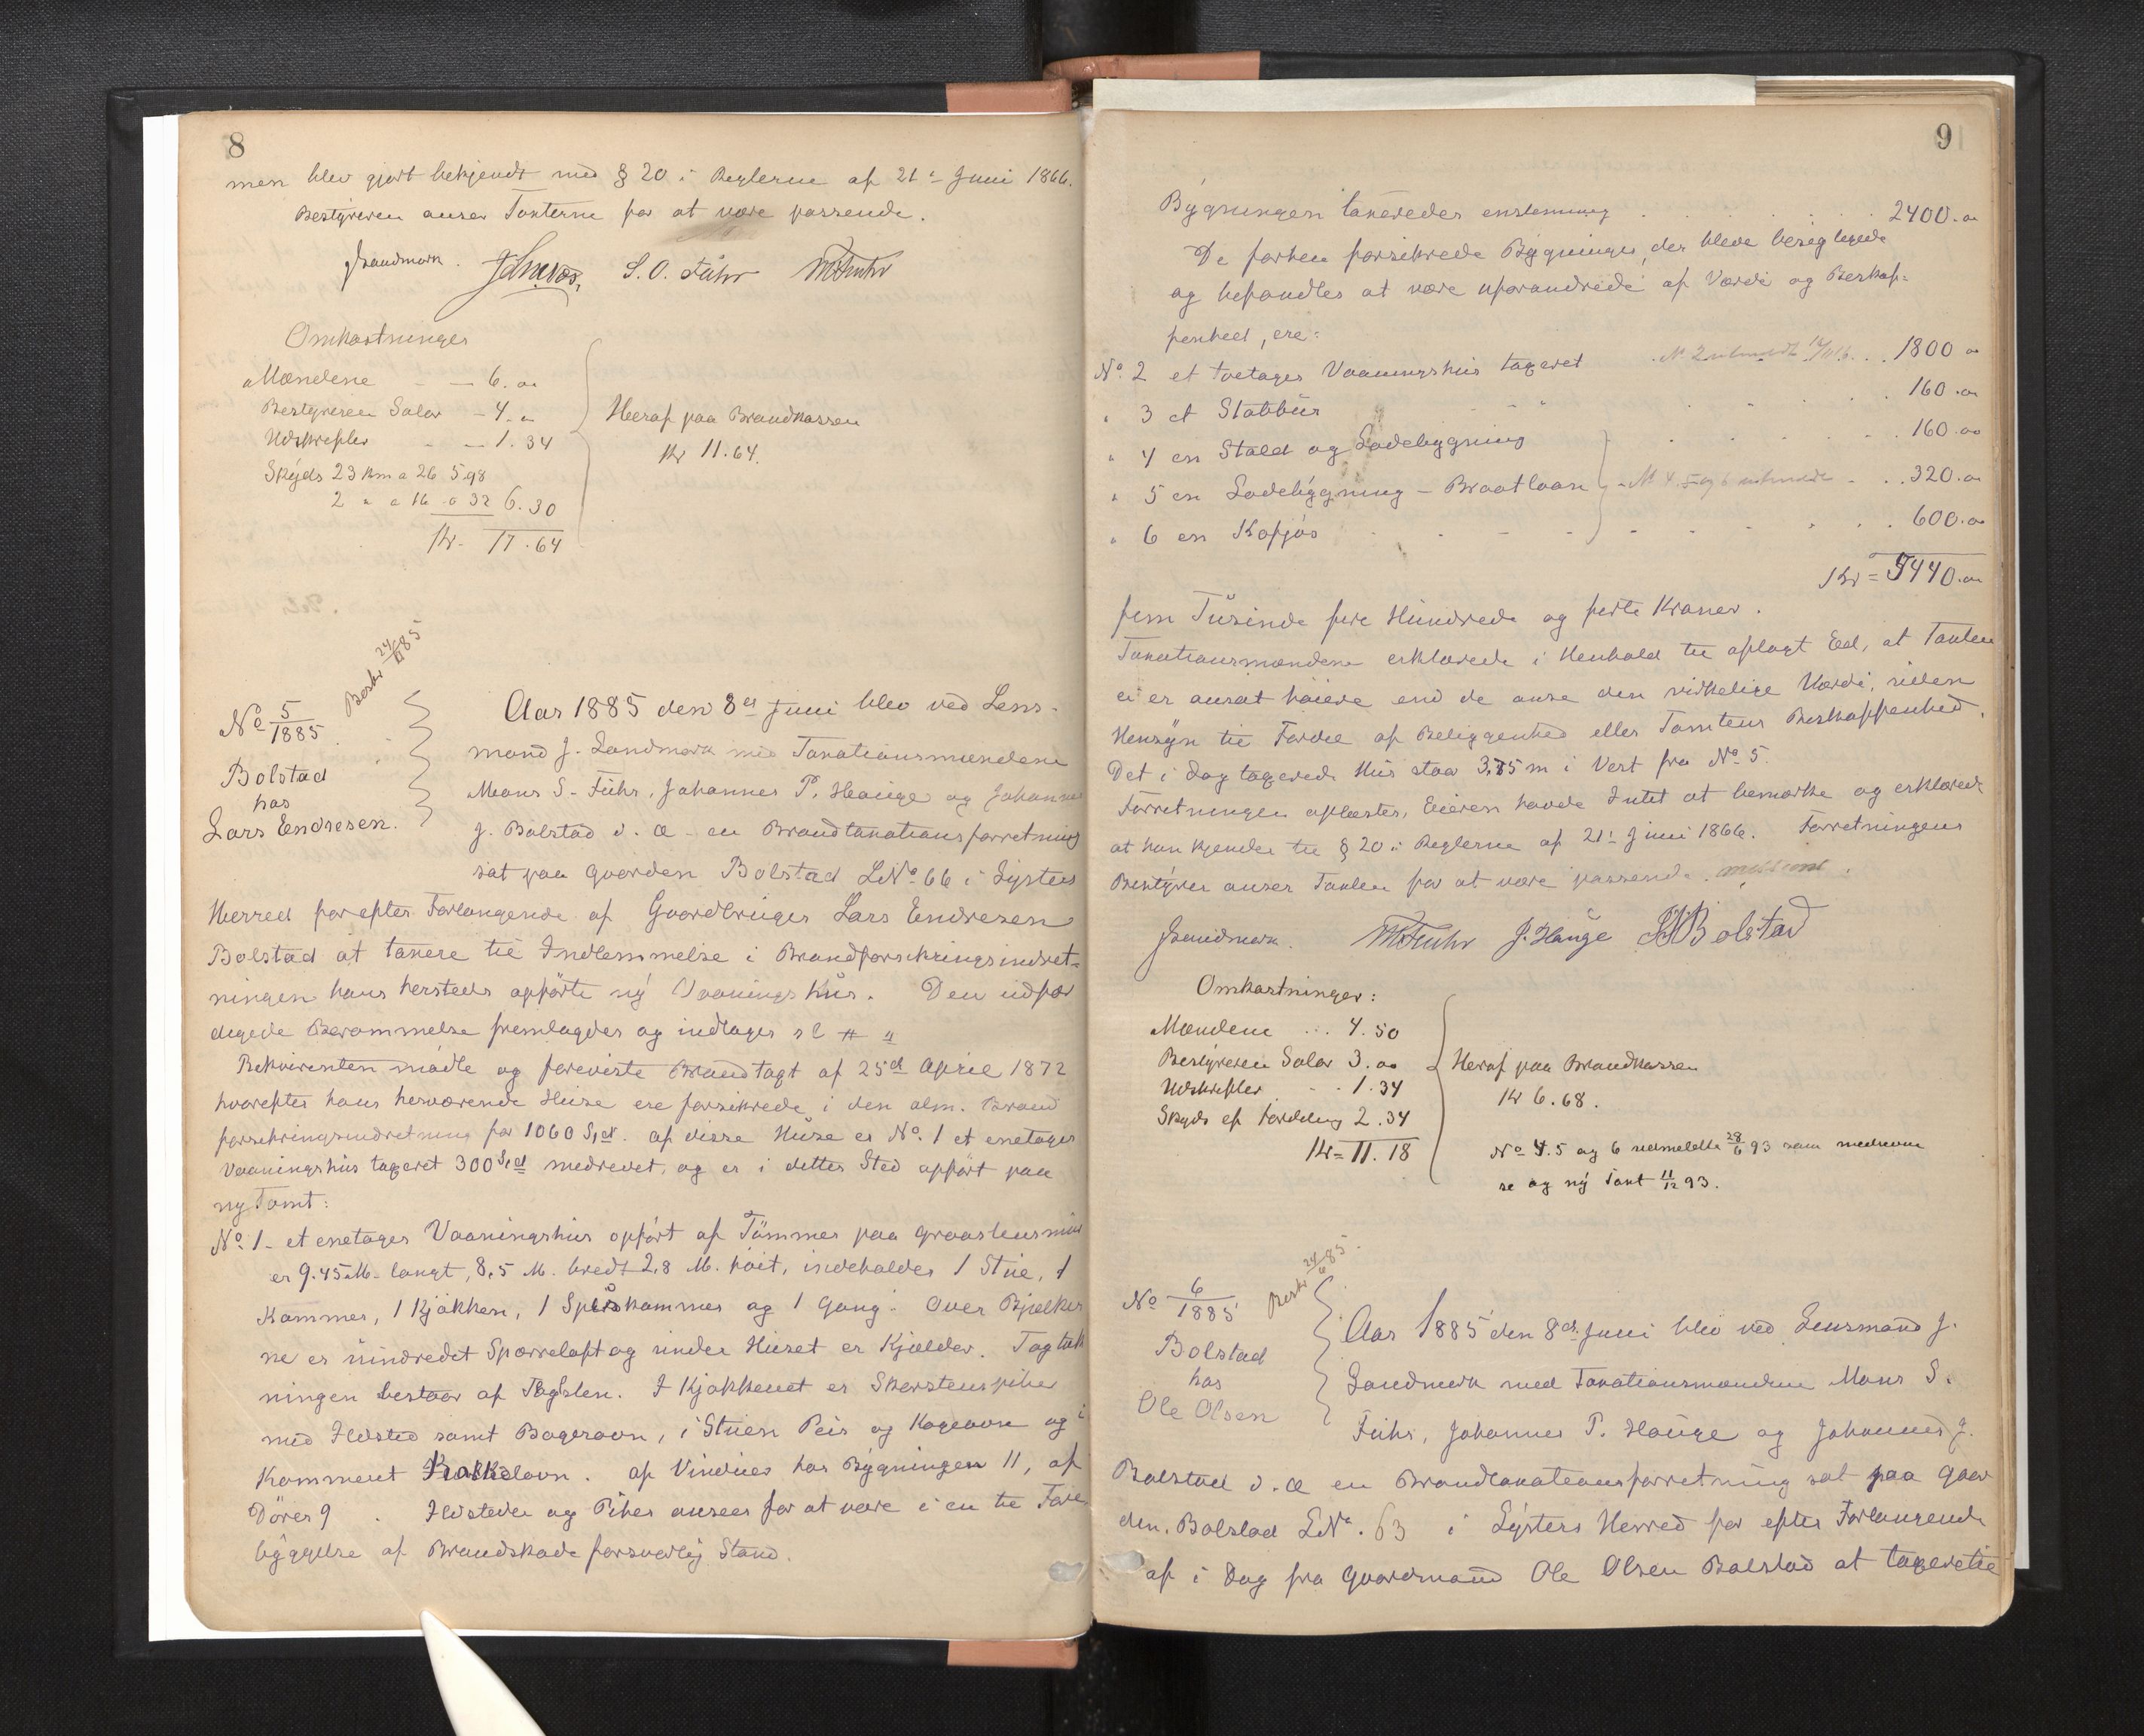 8
men blev gjort bekjendt med § 20 i Reglerne af 21de Juni 1866.
Bestyreren anser Taxterne for at være passende.
J Landmark. S. O. Fuhr M S Fuhr
Omkostninger
Mændene - - 6. 00
Bestyreren Salar - 4. "
Udskrifter - - 1. 34
Skyds 23 km a 26 5.98
2 " a 16 0 32 6.30
Kr. 17.64
Heraf paa Brandkassen
Kr 11.64.
Beskr 24/11 85
No 5/1885
Bolstad
hos
Lars Endresen.
Aar 1885 den 8de Juni blev ved Lens-
mand J. Landmark med Taxationsmændene
Mons S. Fuhr, Johannes P. Hauge og Johannes
J. Bolstad d. æ. en Brandtaxationsforretning
sat paa Gaarden Bolstad LNo 66 i Lysters
Herred for efter Forlangende af Gaardbruger Lars Endresen
Bolstad at taxere til Indlemmelse i Brandforsikringsindret-
ningen hans hersteds opførte ny Vaaningshus. Den udfær
digede Berammelse fremlagdes og indtages sl # "
Rekvirenten mødte og foreviste Brandtaxt af 25de April 1872
hvorefter hans herværende Huse ere forsikrede i den alm. Brand
forsikringsindretning for 1060 Spd. af disse Huse er No. 1 et enetages
Vaaningshus taxeret 300 Spd nedrevet, og er i dettes Sted opført paa
ny Tomt:
No. 1 - et enetages Vaaningshus opført af Tømmer paa Graastensmur
er 9.45 M. langt, 8,5 M. bredt 2,8 M. høit, indeholder 1 Stue, 1
Kammer, 1 Kjøkken, 1 Spiskammer og 1 Gang. Over Bjelker
ne er uindredet Sperreloft og under Huset er Kjelder. Tagtæk
ningen bestaar af Tagsten. I Kjøkkenet er Skorstenspibe
med Ildsted samt Bagerovn, i Stuen Peis og Kogeovn og i
Kammeret Kakkelovn. af Vinduer har Bygningen 11, af
Døres 9. Ildsteder og Piber ansees for at være i en til Fore
byggelse af Brandskade forsvarlig Stand.
9
Bygningen taxeredes enstemmig . . . . . . 2400.00
De forhen forsikrede Bygninger, der bleve besigtigede
og befandtes at være uforandrede af Værdi og Beskaf-
fenhed, ere:
No. 2 et toetages Vaaningshus taxeret . No 2 udmeldt . . 1800 00
" 3 et Stabbur . . . . 160.00
" 4 en Stald og Ladebygning . . . . 160.00
" 5 en Ladebygning - Braatloan - No 4. 5 og 6 udmeldte . . 320.00
" 6 en Kofjøs . . . . 600.00
Kr = 5440.00
fem Tusinde fire Hundrede og firti Kroner.
Taxationsmændene erklærede i Henhold til aflagt Eed, at Taxten
ei er ansat høiere end de anse den virkelige Værdi, uden
Hensyn til Fordel af Beliggenhed eller Tomtens Beskaffenhed.
Det i Dag taxerede Hus staar 3,75 m i Vest fra No. 5.
Forretningen oplæstes, Eieren havde Intet at bemærke og erklærede
at han kjender til § 20 i Reglerne af 21de Juni 1866. Forretningens
Bestyrer anser Taxten for at være passende.
J Landmark. M S Fuhr J. Hauge J J Bolstad
Omkostninger:
Mændene ... 4. 50
Bestyreren Salar 3. 00
Udskrifter . . 1. 34
Skyds ef fordeling 2. 34
Kr = 11. 18
Heraf paa Brandkassen
Kr 6.68.
No 4. 5 og 6 udmeldte 28/6 93 som nedrevne
se og ny Taxt 11/12 93.
Beskr 24/11 85.
No 6/1885
Bolstad
hos
Ole Olsen
Aar 1885 den 8de Juni blev ved Lensmand J.
Landmark med Taxationsmændene Mons S.
Fuhr, Johannes P. Hauge og Johannes J.
Bolstad d. æ en Brandtaxationsforretning sat paa Gaar
den Bolstad LNo. 63 i Lysters Herred for efter Forlangende
af i Dag fra Gaardmand Ole Olsen Bolstad at taxere til